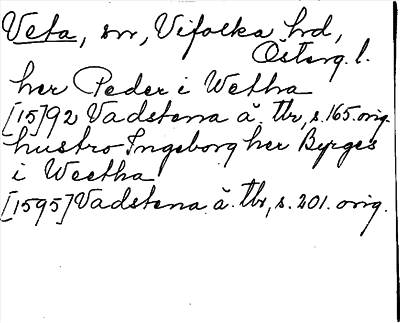 Veta, sn, Vifolka hd,
Österg. l.
her Peder i Wetha
[15]92 Vadstena ä. tbr, s. 165. orig.
hustro Ingeborg her Byrges
i Weetha
[1595] Vadstena ä. tbr, s. 201. orig.